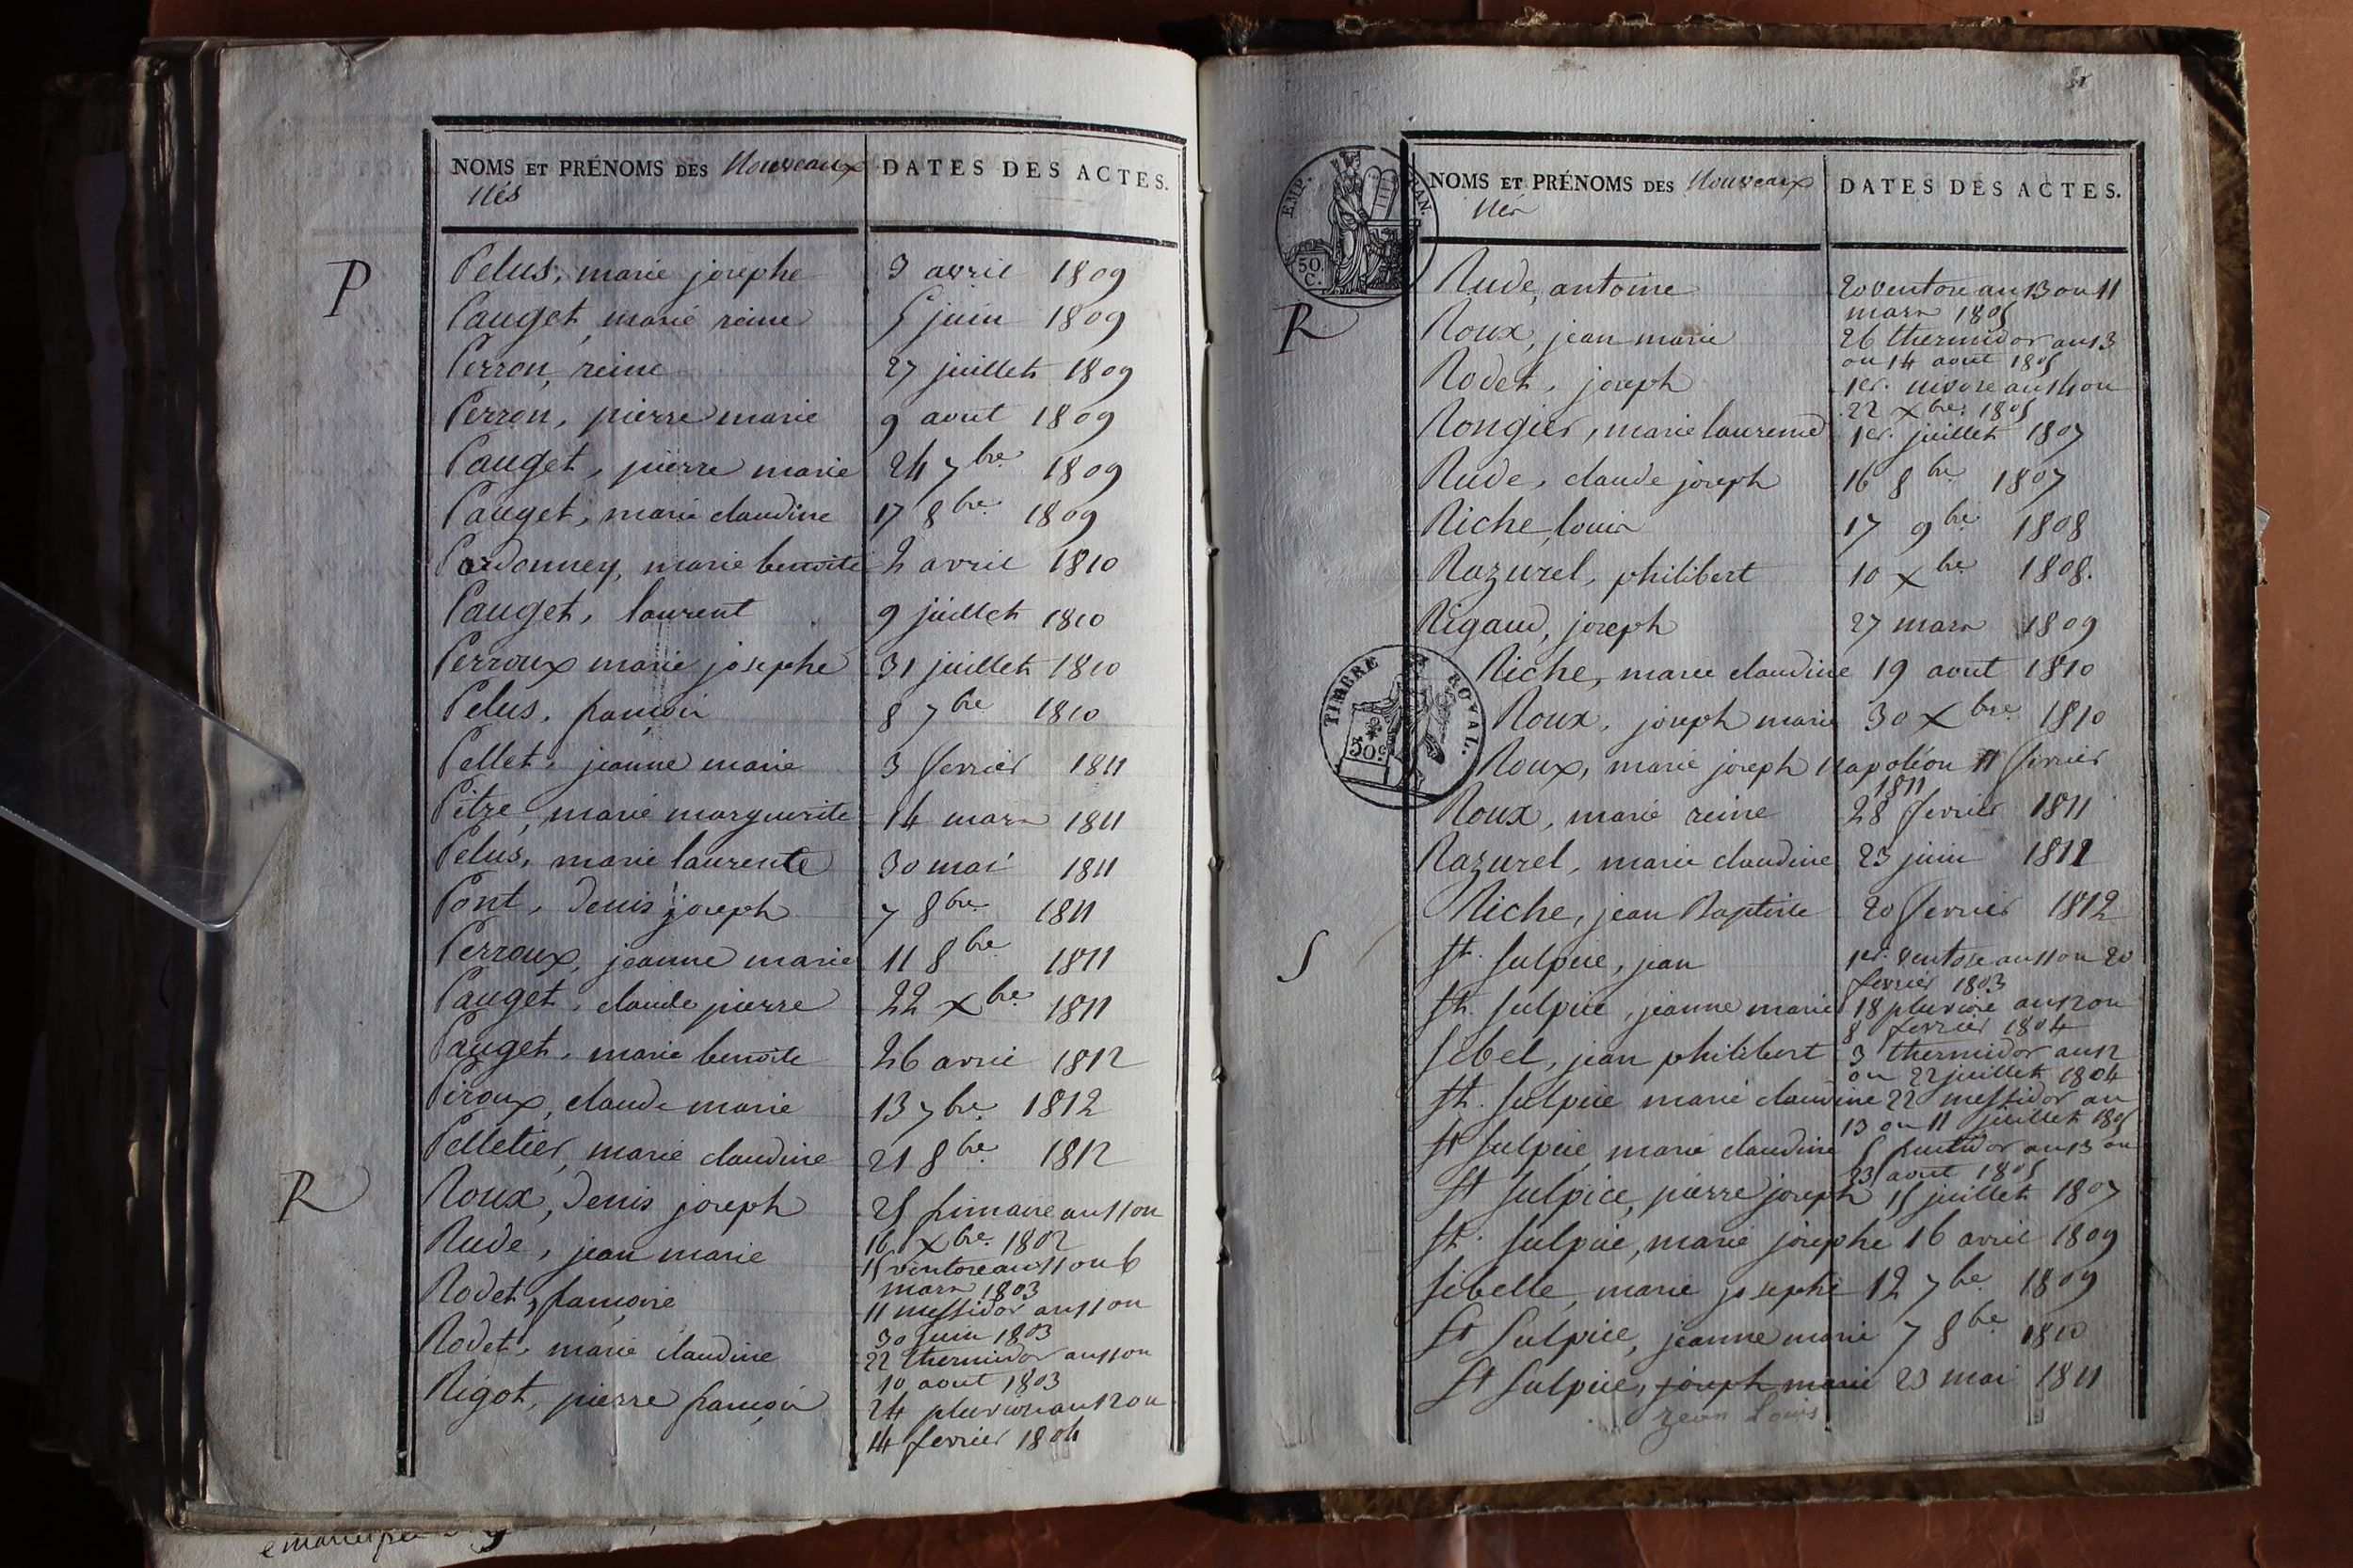 NOMS ET PRÉNOMS DES Nouveaux DATES DES ACTES.
Nés
P
Pelus, marie josephe 3 avril 1809
Pauget, marie reine 5 juin 1809
Perron, reine 27 juillet 1809
Perron, pierre marie 9 aout 1809
Pauget, pierre marie 24 7bre 1809
Pauget, marie claudine 17 8bre 1809
Pardonney, marie benoite 2 avril 1810
Pauget, laurent 9 juillet 1810
Perroux marie josephe 31 juillet 1810
Pelus, françois 8 7bre 1810
Pellet, jeanne marie 3 fevrier 1811
Pitre, marie marguerite 14 mars 1811
Pelus, marie laurente 30 mai 1811
Pont, Denis joseph 7 8bre 1811
Perroux, jeanne marie 11 8bre 1811
Pauget, claude pierre 22 Xbre 1811
Pauget, marie benoite 26 avril 1812
Piroux, claude marie 13 7bre 1812
Pelletier, marie claudine 21 8bre 1812
R
Roux, Denis joseph 25 frimaire an 11 ou
16 Xbre 1802
Rude, jean marie 15 ventose an 11 ou 6
mars 1803
Rodet, françoise 11 messidor an 11 ou
30 juin 1803
Rodet, marie claudine 22 thermidor an 11 ou
10 aout 1803
Rigot, pierre françois 24 pluviose an 12 ou
14 fevrier 1804
NOMS ET PRÉNOMS DES Nouveaux DATES DES ACTES.
Nés
EMP.
50.
C.
R
Rude, antoine 20 ventose an 13 ou 11
mars 1805
Roux, jean marie 26 thermidor an 13
ou 14 aout 1805
Rodet, joseph 1er. nivose an 14 ou
22 Xbre 1805
Rongier, marie laurence 1er. juillet 1807
Rude, claude joseph 16 8bre 1807
Riche, louis 17 9bre 1808
Razurel, philibert 10 Xbre 1808.
Rigaud, joseph 27 mars 1809
TIMBRE ROYAL.
50c
Riche, marie claudine 19 aout 1810
Roux, joseph marie 30 Xbre 1810
Roux, marie joseph Napoléon 11 fevrier
1811
Roux, marie reine 28 fevrier 1811
Razurel, marie claudine 23 juin 1811
Riche, jean Baptiste 20 fevrier 1812
S
St. Sulpice, jean 1er. ventose an 11 ou 20
fevrier 1803
St. Sulpice, jeanne marie 18 pluviose an 12 ou
8 fevrier 1804
Sibel, jean philibert 3 thermidor an 12
ou 22 juillet 1804
St. Sulpice marie claudine 22 messidor an
13 ou 11 juillet 1805
St Sulpice marie claudine 5 fructidor an 13 ou
23 aout 1805
St Sulpice, pierre joseph 15 juillet 1807
St. Sulpice, marie josephe 16 avril 1809
Sibelle, marie josephe 12 7bre 1809
St Sulpice, jeanne marie 7 8bre 1810
St Sulpice, joseph marie 23 mai 1811
Jean Louis